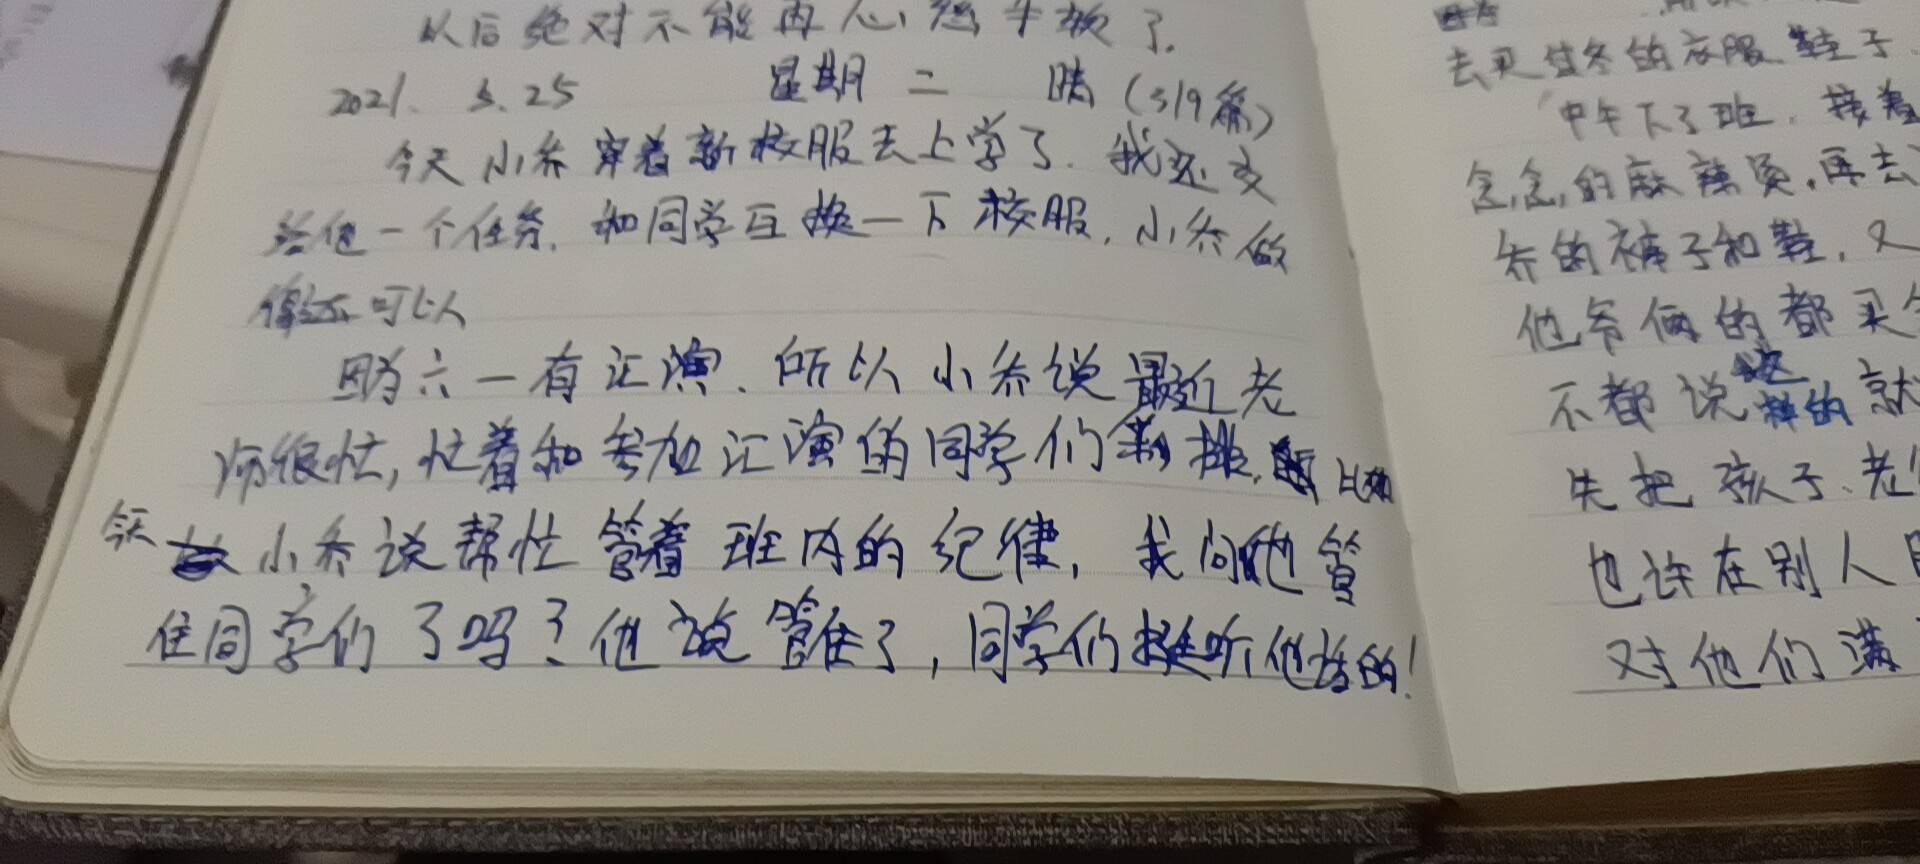 以后绝对不能再心慈手软了.
2021. 5. 25 星期二 晴 (319篇)
今天小乔穿着新校服去上学了. 我还交
给他一个任务. 和同学互换一下校服. 小乔做
得还可以
因为六一有汇演. 所以小乔说最近老
师很忙, 忙着和参加汇演的同学们彩排. 比如
今天小乔说帮忙管着班内的纪律, 我问他管
住同学们了吗? 他说管住了, 同学们挺听他话的!
去买过冬的衣服. 鞋子
中午下了班. 接着
念念的麻辣烫. 再去
乔的裤子和鞋. 又
他爷俩的都买
不都说这样的就
先把孩子. 老
也许在别人
对他们满